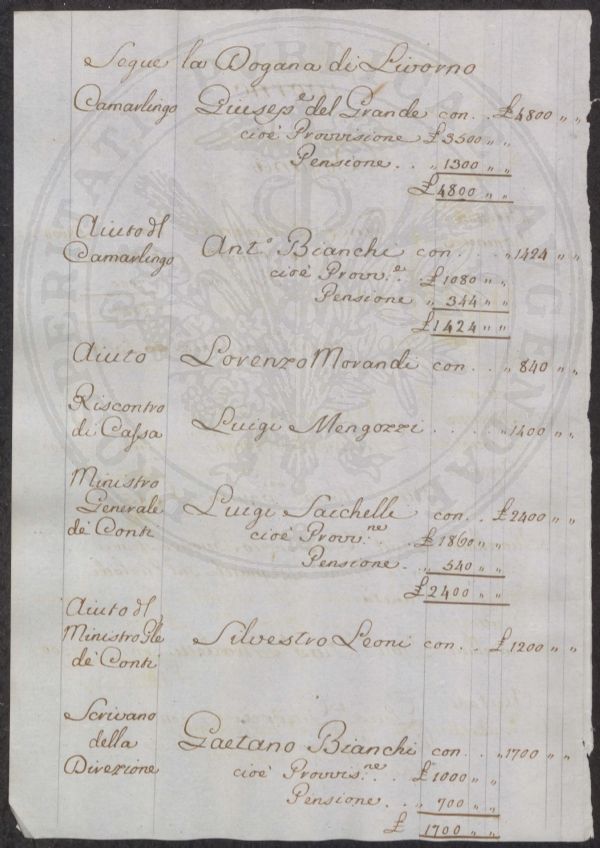 Segue la Dogana di Livorno
Camarlingo Giusep.e del Grande con . . £ 4800 „ „
cioè Provvisione £ 3500 „ „
Pensione . . „ 1300 „ „
£ 4800 „ „
Aiuto dl
Camarlingo Ant.o Bianchi con . . . „ 1424 „ „
cioè Provv.e . . £ 1080 „ „
Pensione „ 344 „ „
£ 1424 „ „
Aiuto Lorenzo Morandi con . . „ 840 „ „
Riscontro
di Cassa Luigi Mengozzi . . . . . „ 1400 „ „
Ministro
Generale
de' Conti Luigi Sacchelli con . . £ 2400 „ „
cioè Provv.ne . . £ 1860 „ „
Pensione . . „ 540 „ „
£ 2400 „ „
Aiuto dl
Ministro Gle
de' Conti Silvestro Leoni con . . £ 1200 „ „
Scrivano
della
Direzione Gaetano Bianchi con . . „ 1700 „ „
cioè Provvis.ne . . £ 1000 „ „
Pensione . . „ 700 „ „
£ 1700 „ „